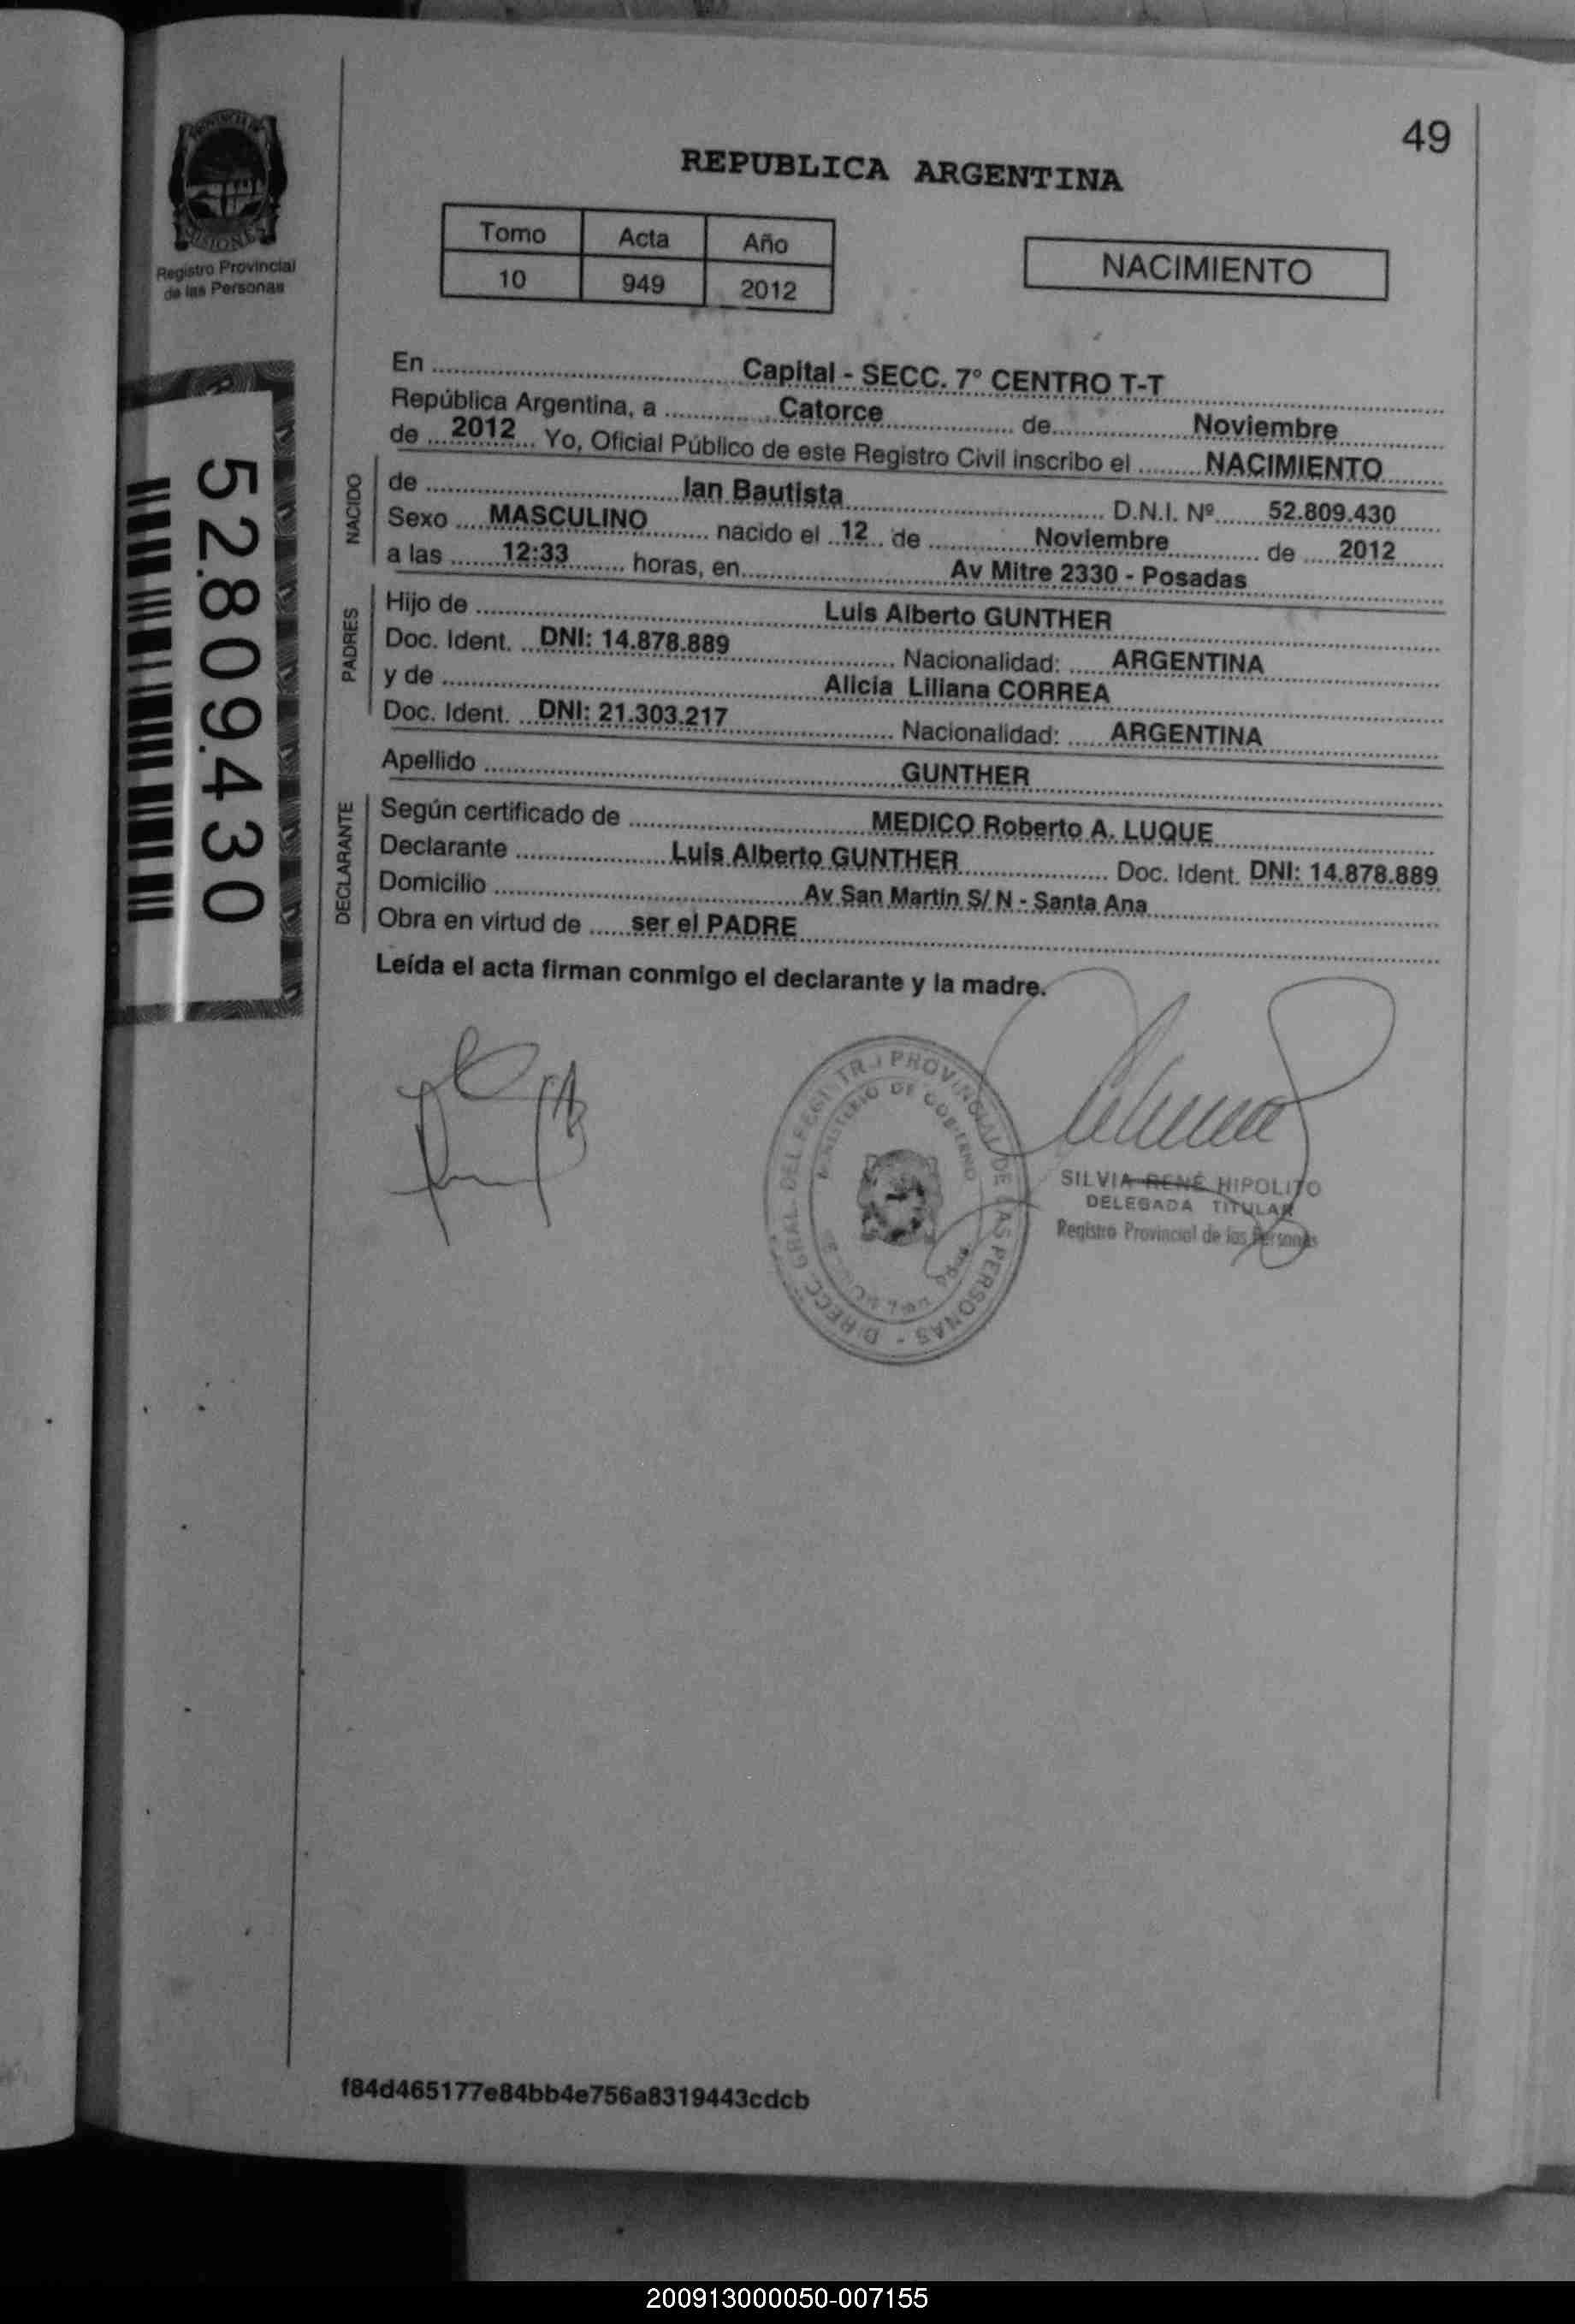 49
PROVINCIA DE
MISIONES
Registro Provincial
de las Personas
REPUBLICA ARGENTINA
Tomo Acta Año
10 949 2012
NACIMIENTO
52.809.430
En Capital - SECC. 7º CENTRO T-T
República Argentina, a Catorce de Noviembre
de 2012 Yo, Oficial Público de este Registro Civil inscribo el NACIMIENTO
NACIDO
de Ian Bautista D.N.I. Nº 52.809.430
Sexo MASCULINO nacido el 12 de Noviembre de 2012
a las 12:33 horas, en Av Mitre 2330 - Posadas
PADRES
Hijo de Luis Alberto GUNTHER
Doc. Ident. DNI: 14.878.889 Nacionalidad: ARGENTINA
y de Alicia Liliana CORREA
Doc. Ident. DNI: 21.303.217 Nacionalidad: ARGENTINA
Apellido GUNTHER
DECLARANTE
Según certificado de MEDICO Roberto A. LUQUE
Declarante Luis Alberto GUNTHER Doc. Ident. DNI: 14.878.889
Domicilio Av San Martin S/ N - Santa Ana
Obra en virtud de ser el PADRE
Leída el acta firman conmigo el declarante y la madre.
DIRECC. GRAL. DEL REGISTRO PROVINCIAL DE LAS PERSONAS -
MINISTERIO DE GOBIERNO
SILVIA RENÉ HIPOLITO
DELEGADA TITULAR
Registro Provincial de las Personas
f84d465177e84bb4e756a8319443cdcb
200913000050-007155